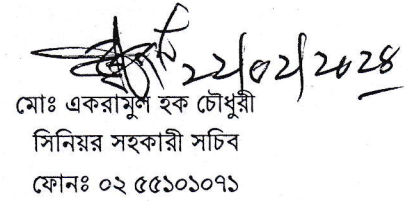 ২২/০২/২০২৪
মোঃ একরামুল হক চৌধুরী
সিনিয়র সহকারী সচিব
ফোনঃ ০২ ৫৫১০১০৭১